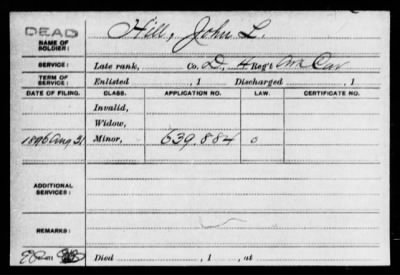 DEAD
NAME OF SOLDIER: Hill, John L.
SERVICE: Late rank, Co. D, 4 Reg't Ark Cav
TERM OF SERVICE: Enlisted , 1 Discharged , 1
DATE OF FILING. CLASS. APPLICATION NO. LAW. CERTIFICATE NO.
Invalid,
Widow,
1896 Aug 31 Minor, 639.884
ADDITIONAL SERVICES:
REMARKS:
Died , 1 , at